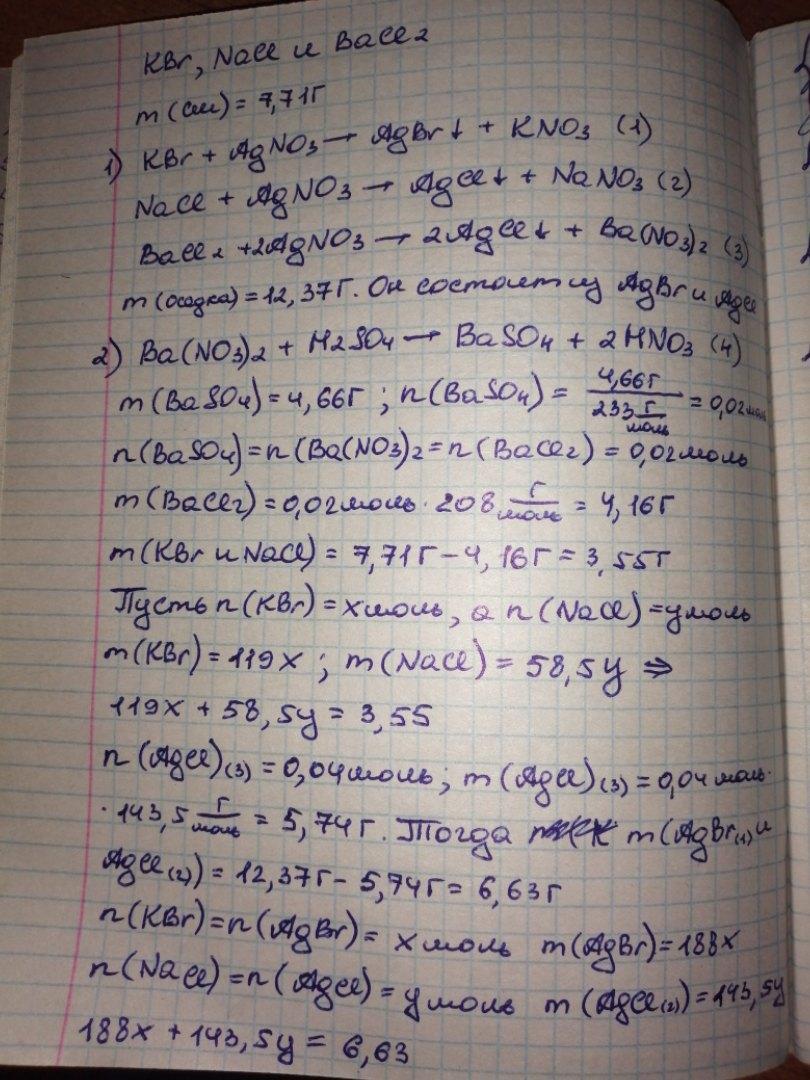 KBr, NaCl и BaCl2
m(см) = 7,71г
1) KBr + AgNO3 → AgBr↓ + KNO3 (1)
NaCl + AgNO3 → AgCl↓ + NaNO3 (2)
BaCl2 +2AgNO3 → 2AgCl↓ + Ba(NO3)2 (3)
m(осадка) = 12,37г. Он состоит из AgBr и AgCl
2) Ba(NO3)2 + H2SO4 → BaSO4 + 2HNO3 (4)
m(BaSO4) = 4,66г ; n(BaSO4) = 4,66г / 233 г/моль = 0,02моль
n(BaSO4) = n(Ba(NO3)2 = n(BaCl2) = 0,02моль
m(BaCl2) = 0,02моль · 208 г/моль = 4,16г
m(KBr и NaCl) = 7,71г - 4,16г = 3,55г
Пусть n(KBr) = x моль, а n(NaCl) = y моль
m(KBr) = 119x ; m(NaCl) = 58,5y ⇒
119x + 58,5y = 3,55
n(AgCl)(3) = 0,04моль; m(AgCl)(3) = 0,04моль·
· 143,5 г/моль = 5,74г. Тогда m(AgBr(1) и
AgCl(2)) = 12,37г - 5,74г = 6,63г
n(KBr) = n(AgBr) = x моль m(AgBr) = 188x
n(NaCl) = n(AgCl) = y моль m(AgCl(2)) = 143,5y
188x + 143,5y = 6,63